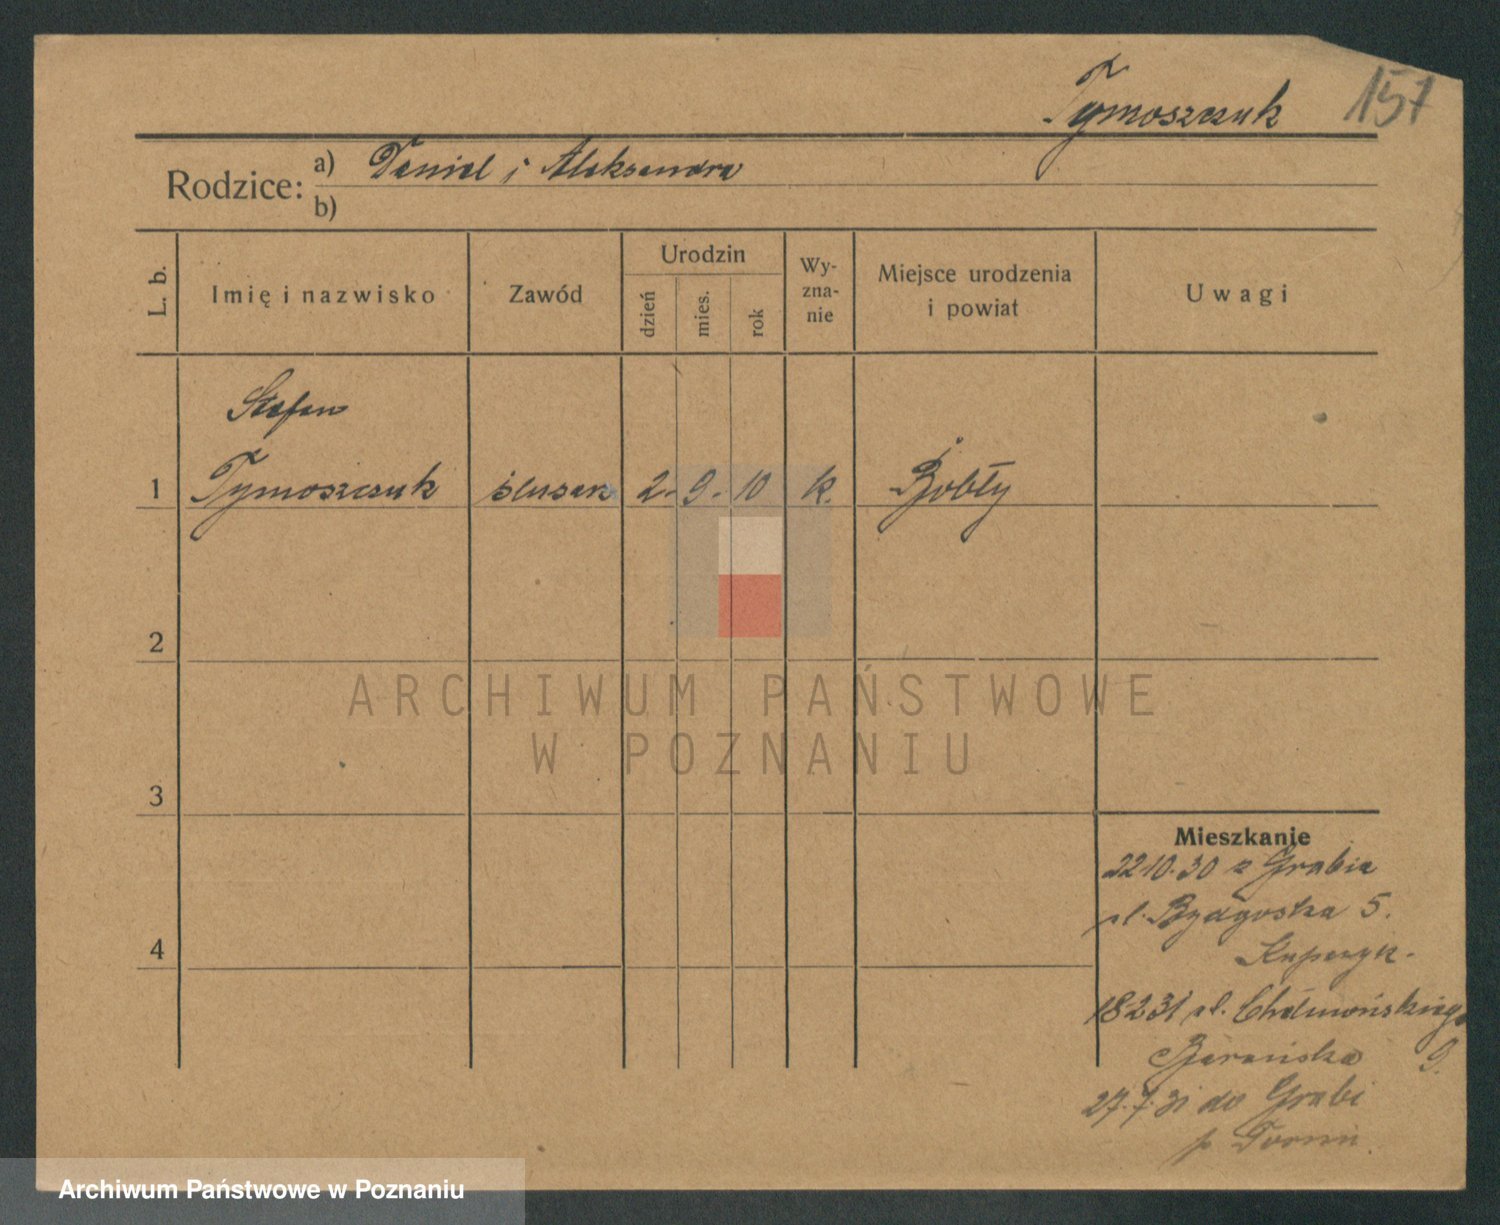 Tymoszczuk 157
Rodzice: a) Daniel i Aleksandra
b)
L. b.
Imię i nazwisko
Zawód
Urodzin
dzień
mies.
rok
Wy-
zna-
nie
Miejsce urodzenia
i powiat
Uwagi
Stefan
1 Tymoszczuk ślusarz 2. 9. 10 k.
2
3
4
Mieszkanie
22.10.30 z Grabia
ul. Bydgoska 5.
18 2 31 ul. Chełmońskiego
9.
Barańska
27.7.31 do Grabi
p.
ARCHIWUM PAŃSTWOWE
W POZNANIU
Archiwum Państwowe w Poznaniu